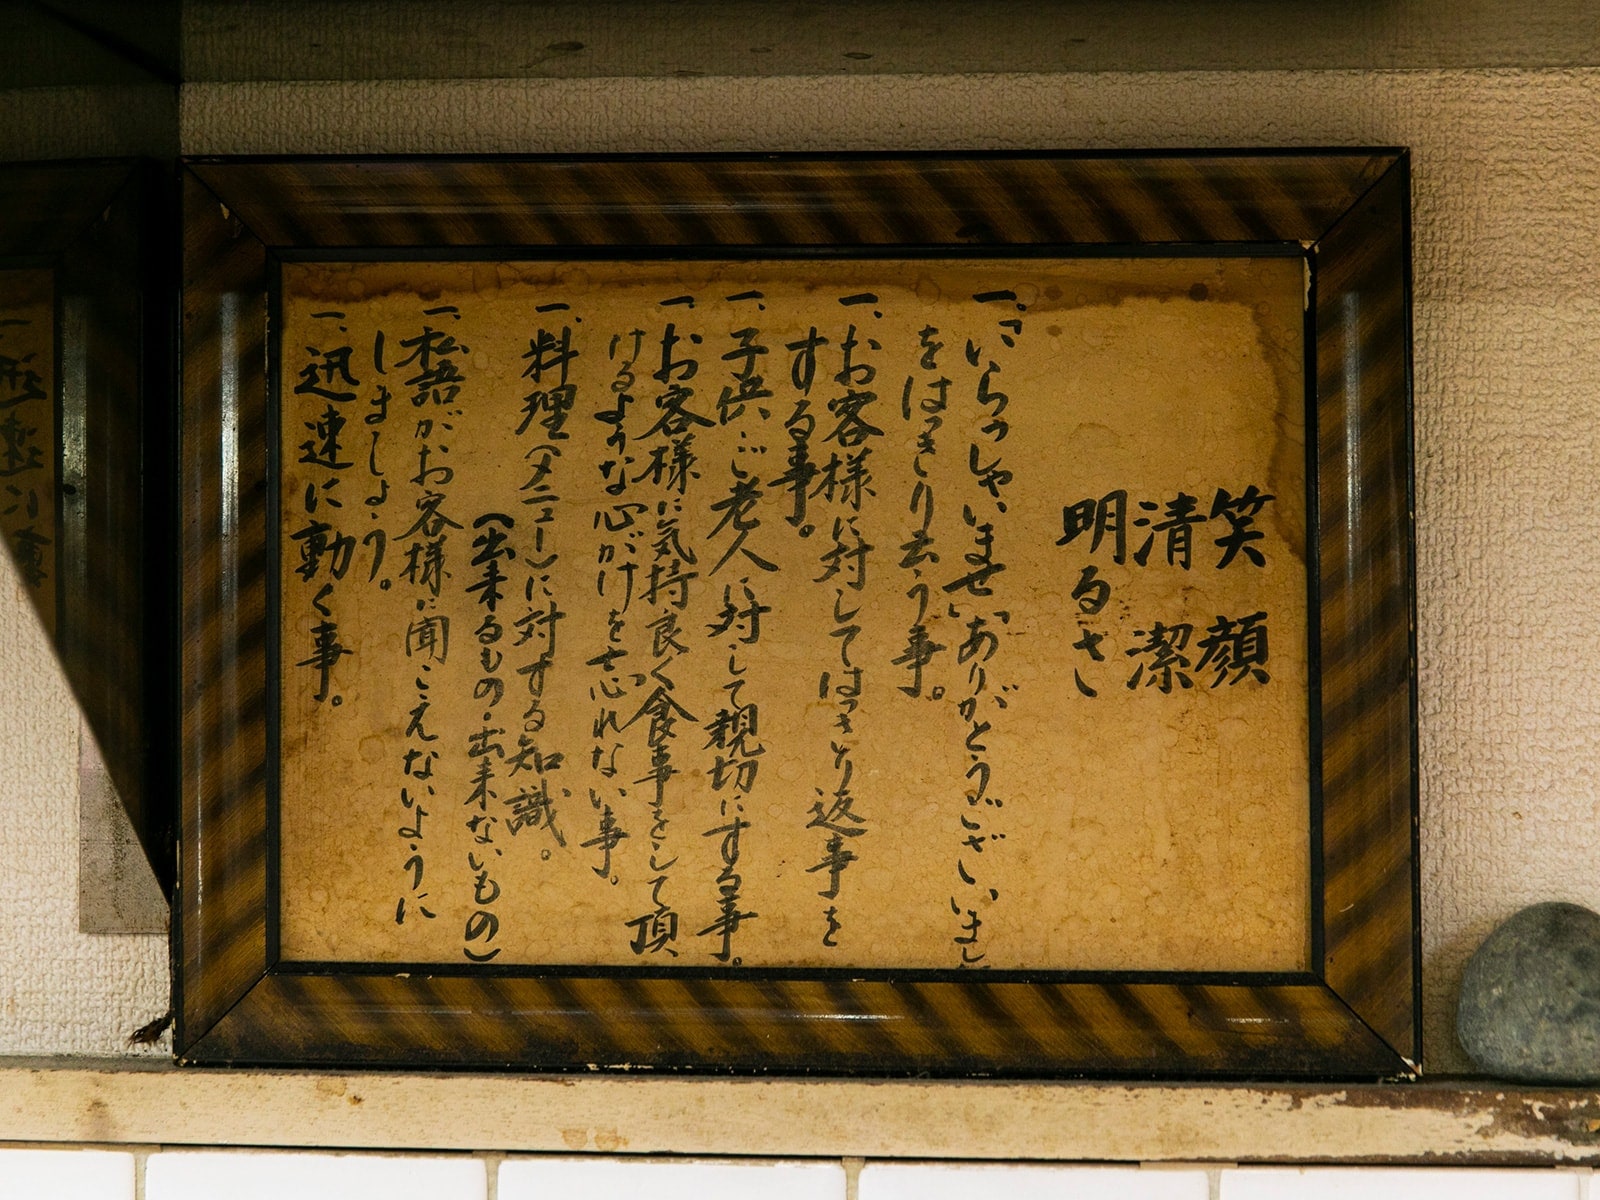 笑顔
清潔
明るさ
一、「いらっしゃいませ」「ありがとうございまし
をはっきり云う事。
一、お客様に対してはっきり返事を
する事。
一、子供・ご老人に対して親切にする事。
一、お客様に気持良く食事をして頂
けるような心がけを忘れない事。
一、料理(メニュー)に対する知識。
(出来るもの・出来ないもの)
一、私語がお客様に聞こえないように
しましょう。
一、迅速に動く事。
一、迅速に動